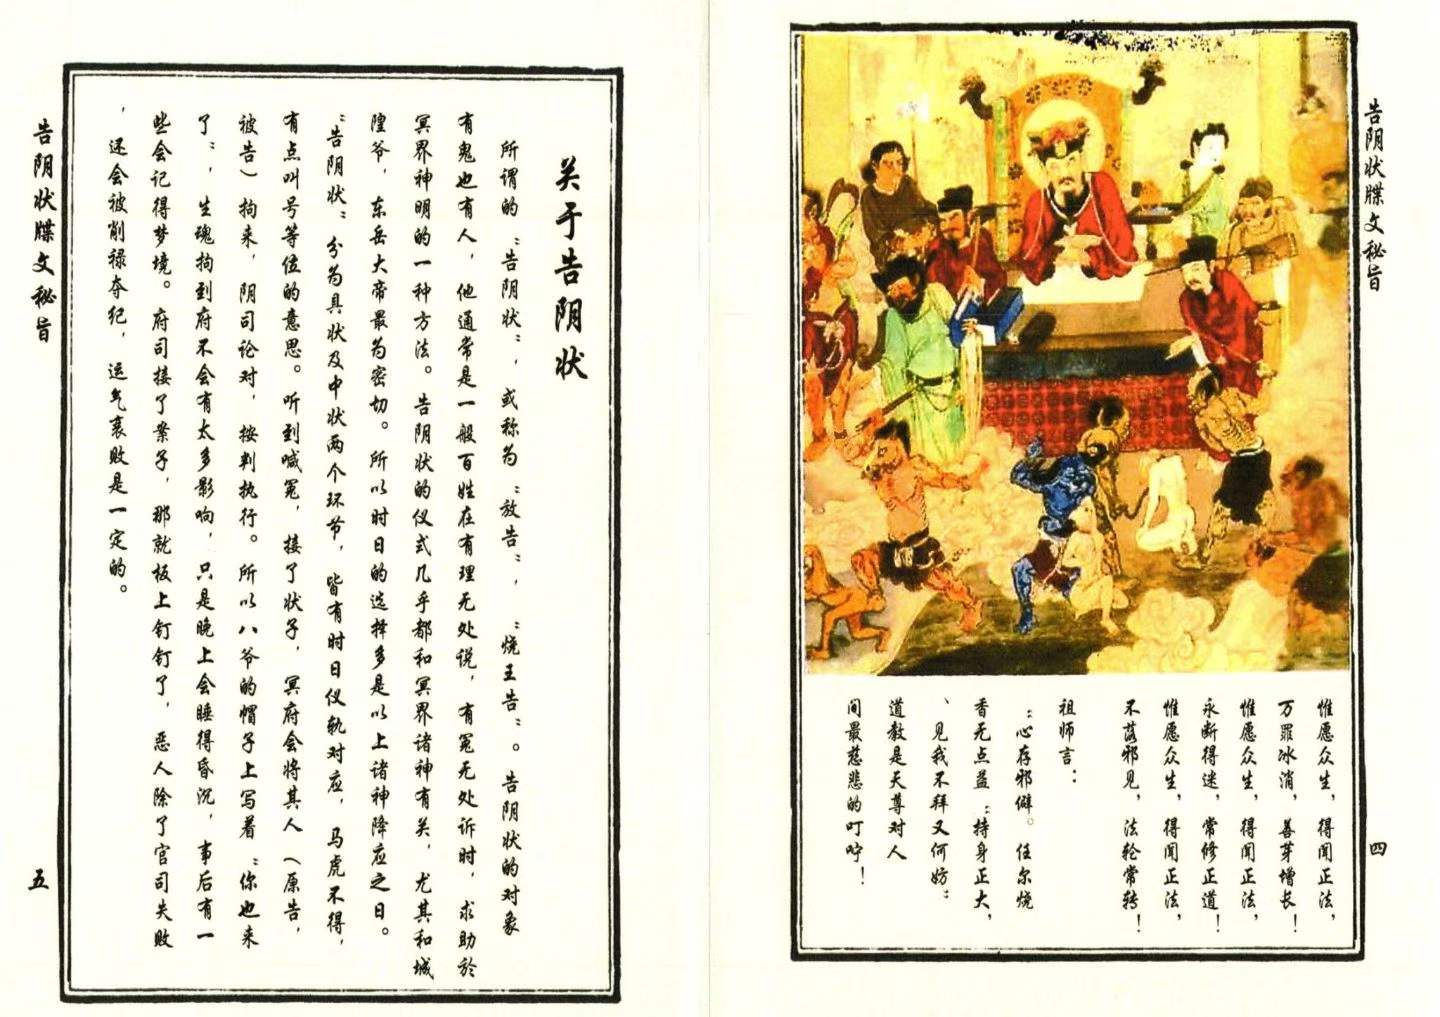 告阴状牒文秘旨
四
惟愿众生，得闻正法，
万罪冰消，善芽增长！
惟愿众生，得闻正法，
永断得迷，常修正道！
惟愿众生，得闻正法，
不落邪见，法轮常转！
祖师言：
“心存邪僻。任尔烧
香无点益；持身正大，
、见我不拜又何妨”
道教是天尊对人
间最慈悲的叮咛！
关于告阴状
所谓的“告阴状”，或称为“放告”，“烧王告”。告阴状的对象
有鬼也有人，他通常是一般百姓在有理无处说，有冤无处诉时，求助於
冥界神明的一种方法。告阴状的仪式几乎都和冥界诸神有关，尤其和城
隍爷，东岳大帝最为密切。所以时日的选择多是以上诸神降应之日。
“告阴状”分为具状及中状两个环节，皆有时日仪轨对应，马虎不得，
有点叫号等位的意思。听到喊冤，接了状子，冥府会将其人（原告，
被告）拘来，阴司论对，按判执行。所以八爷的帽子上写着“你也来
了”，生魂拘到府不会有太多影响，只是晚上会睡得昏沉，事后有一
些会记得梦境。府司接了案子，那就板上钉钉了，恶人除了官司失败
，还会被削禄夺纪，运气衰败是一定的。
告阴状牒文秘旨
五